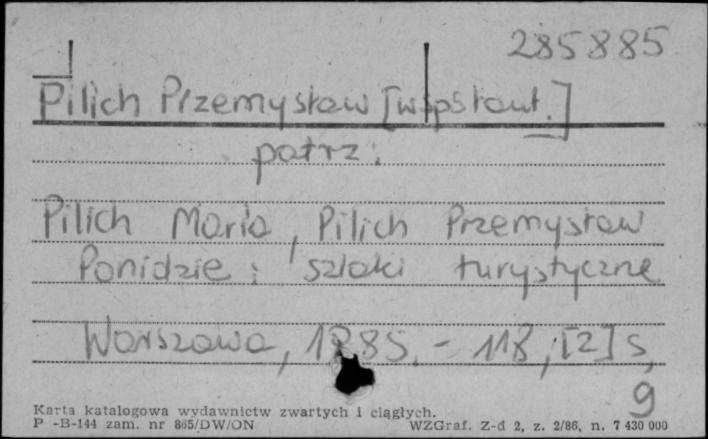 285885
Pilich Przemysław [współaut.]
patrz:
Pilich Maria, Pilich Przemysław
Ponidzie: szlaki turystyczne
Warszawa, 1985. - 118, [2] s,
9
Karta katalogowa wydawnictw zwartych i ciągłych.
P -B-144 zam. nr 865/DW/ON WZGraf. Z-d 2, z. 2/86, n. 7 430 000